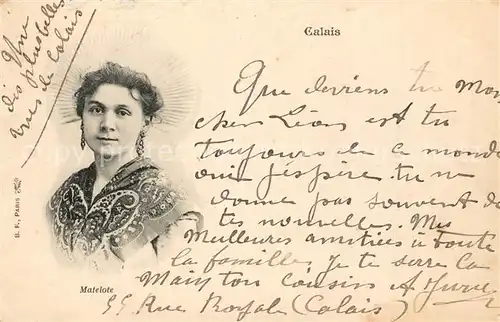 Une
dis plus belles
vues de Calais
Calais
Que deviens tu Mon
cher Léon es tu
toujours de ce monde
oui j'espère. tu ne
donne pas souvent de
tes nouvelles. Mes
Meilleures amitiées à toute
la familles je te serre la
Main ton cousin A
55 Rue Royale (Calais)
Matelote
B. F., PARIS